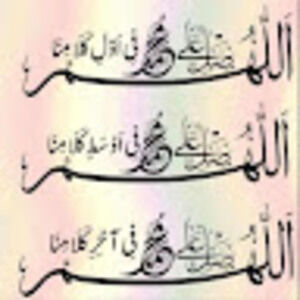 اللّٰهم صل علی محمد فی اول کلامنا
اللّٰهم صل علی محمد فی اوسط کلامنا
اللّٰهم صل علی محمد فی آخر کلامنا